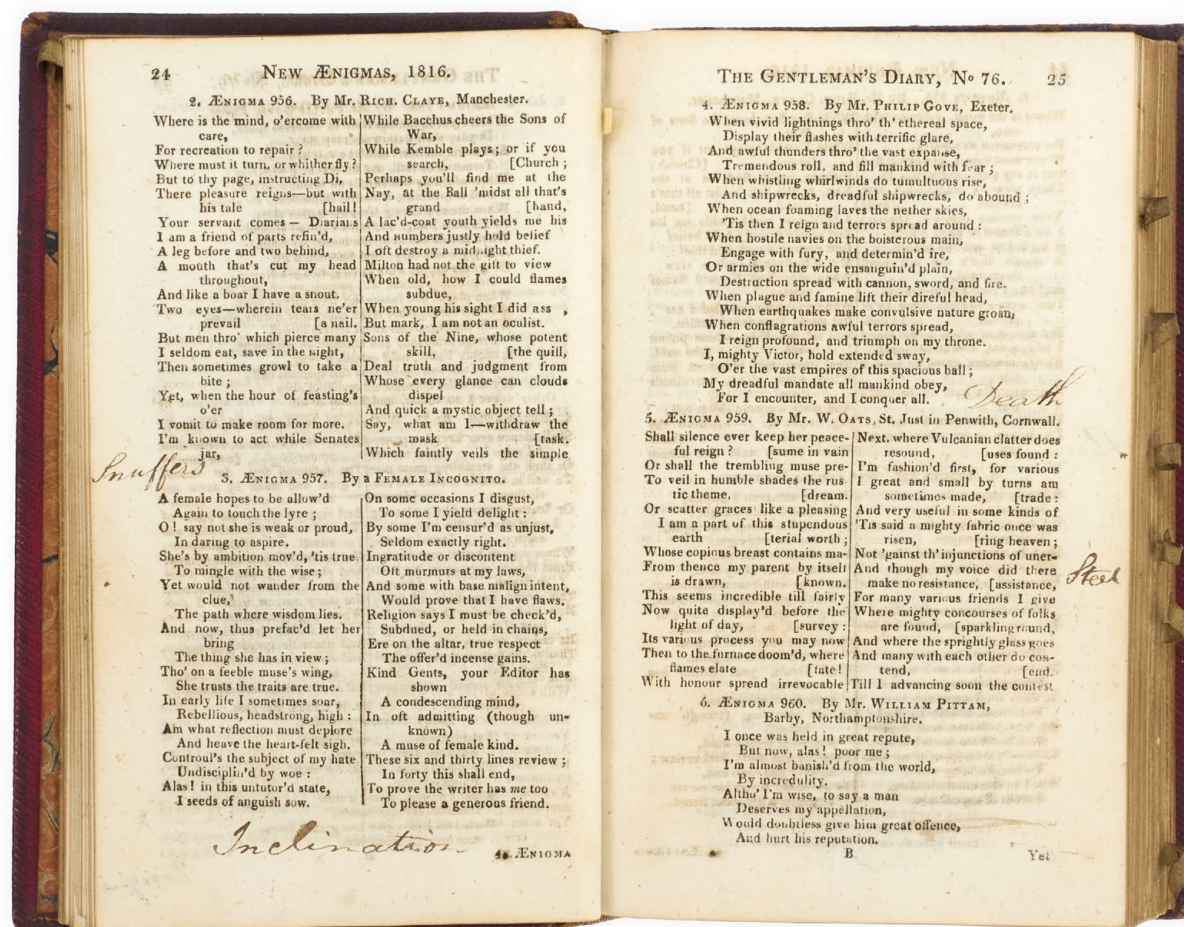 24
NEW ÆNIGMAS, 1816.
2. ÆNIGMA 956. By Mr. RICH. CLAYE, Manchester.
Where is the mind, o'ercome with
care,
For recreation to repair?
Where must it turn, or whither fly?
But to thy page, instructing Di,
There pleasure reigns—but with
his tale [hail!
Your servant comes — Diarians
I am a friend of parts refin'd,
A leg before and two behind,
A mouth that's cut my head
throughout,
And like a boar I have a snout.
Two eyes—wherein tears ne'er
prevail [a nail.
But men thro' which pierce many
I seldom eat, save in the night,
Then sometimes growl to take a
bite;
Yet, when the hour of feasting's
o'er
I vomit to make room for more.
I'm known to act while Senates
jar,
While Bacchus cheers the Sons of
War,
While Kemble plays; or if you
search, [Church;
Perhaps you'll find me at the
Nay, at the Ball 'midst all that's
grand [hand,
A lac'd-coat youth yields me his
And numbers justly hold belief
I oft destroy a midnight thief.
Milton had not the gift to view
When old, how I could flames
subdue,
When young his sight I did ass ,
But mark, I am not an oculist.
Sons of the Nine, whose potent
skill, [the quill,
Deal truth and judgment from
Whose every glance can clouds
dispel
And quick a mystic object tell;
Say, what am I—withdraw the
mask [task.
Which faintly veils the simple
Snuffers
3. ÆNIGMA 957. By a FEMALE INCOGNITO.
A female hopes to be allow'd
Again to touch the lyre;
O! say not she is weak or proud,
In daring to aspire.
She's by ambition mov'd, 'tis true
To mingle with the wise;
Yet would not wander from the
clue,
The path where wisdom lies.
And now, thus prefac'd let her
bring
The thing she has in view;
Tho' on a feeble muse's wing,
She trusts the traits are true.
In early life I sometimes soar,
Rebellious, headstrong, high:
Am what reflection must deplore
And heave the heart-felt sigh.
Controul's the subject of my hate
Undisciplin'd by woe:
Alas! in this untutor'd state,
I seeds of anguish sow.
On some occasions I disgust,
To some I yield delight:
By some I'm censur'd as unjust,
Seldom exactly right.
Ingratitude or discontent
Oft murmurs at my laws,
And some with base malign intent,
Would prove that I have flaws.
Religion says I must be check'd,
Subdued, or held in chains,
Ere on the altar, true respect
The offer'd incense gains.
Kind Gents, your Editor has
shown
A condescending mind,
In oft admitting (though un-
known)
A muse of female kind.
These six and thirty lines review;
In forty this shall end,
To prove the writer has me too
To please a generous friend.
Inclination
4. ÆNIGMA
THE GENTLEMAN'S DIARY, No 76.
25
4. ÆNIGMA 958. By Mr. PHILIP GOVE, Exeter.
When vivid lightnings thro' th' ethereal space,
Display their flashes with terrific glare,
And awful thunders thro' the vast expanse,
Tremendous roll, and fill mankind with fear;
When whistling whirlwinds do tumultuous rise,
And shipwrecks, dreadful shipwrecks, do abound;
When ocean foaming laves the nether skies,
'Tis then I reign and terrors spread around:
When hostile navies on the boisterous main,
Engage with fury, and determin'd ire,
Or armies on the wide ensanguin'd plain,
Destruction spread with cannon, sword, and fire.
When plague and famine lift their direful head,
When earthquakes make convulsive nature groan,
When conflagrations awful terrors spread,
I reign profound, and triumph on my throne.
I, mighty Victor, hold extended sway,
O'er the vast empires of this spacious ball;
My dreadful mandate all mankind obey,
For I encounter, and I conquer all.
Death
5. ÆNIGMA 959. By Mr. W. OATS, St. Just in Penwith, Cornwall.
Shall silence ever keep her peace-
ful reign? [sume in vain
Or shall the trembling muse pre-
To veil in humble shades the rus-
tic theme, [dream.
Or scatter graces like a pleasing
I am a part of this stupendous
earth [terial worth;
Whose copious breast contains ma-
From thence my parent by itself
is drawn, [known.
This seems incredible till fairly
Now quite display'd before the
light of day, [survey:
Its various process you may now
Then to the furnace doom'd, where
flames elate [fate!
With honour spread irrevocable
Next, where Vulcanian clatter does
resound, [uses found:
I'm fashion'd first, for various
I great and small by turns am
sometimes made, [trade:
And very useful in some kinds of
'Tis said a mighty fabric once was
risen, [ring heaven;
Not 'gainst th' injunctions of uner-
And though my voice did there
make no resistance, [assistance,
For many various friends I give
Where mighty concourses of folks
are found, [sparkling round,
And where the sprightly glass goes
And many with each other do con-
tend, [end.
Till I advancing soon the contest
Steel
6. ÆNIGMA 960. By Mr. WILLIAM PITTAM,
Barby, Northamptonshire.
I once was held in great repute,
But now, alas! poor me;
I'm almost banish'd from the world,
By incredulity.
Altho' I'm wise, to say a man
Deserves my appellation,
Would doubtless give him great offence,
And hurt his reputation.
B
Yet